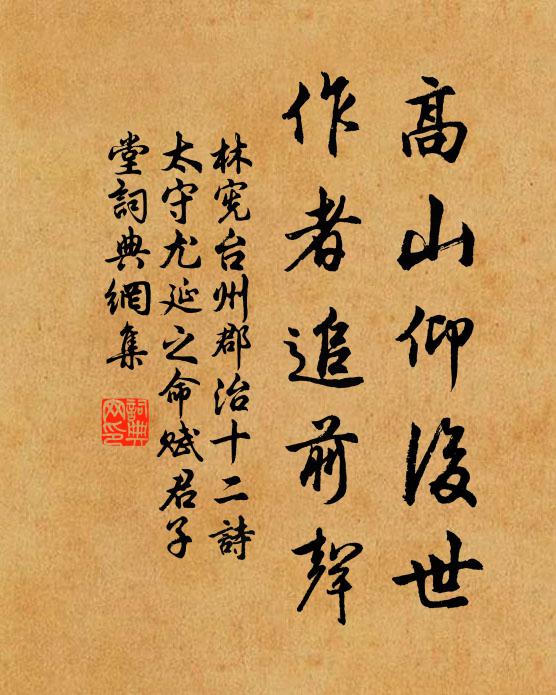 高山仰後世
作者追前聲
林憲台州郡治十二詩
太守尤延之命賦君子
堂詞典網集
詞典
網印